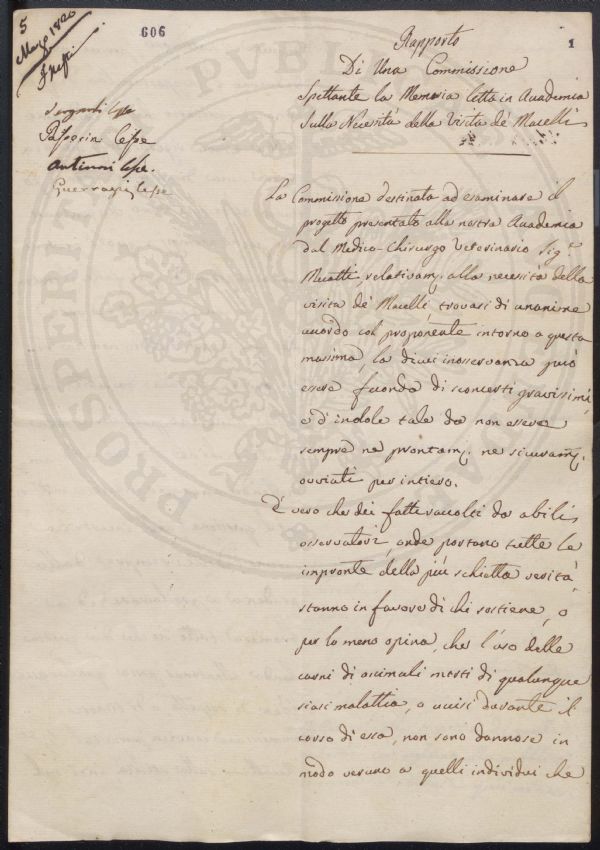 5
Marzo 1820
606
1
Rapporto
Di Una Commissione
Spettante la Memoria letta in Academia
Sulla Necesità della Visita de' Macelli
Passerin Cesse
Antinori Cesse.
Guerrazzi Cesse
La Commissione destinata ad esaminare il
progetto presentato alla nostra Academia
dal Medico-Chirurgo Veterinario Sig.r
relativam. alla necessità della
visita de' Macelli trovasi di unanime
accordo col proponente intorno a questa
massima, la di cui inosservanza può
essere feconda di sconcerti gravissimi,
e d'indole tale da non essere
sempre ne prontam. ne sicuram.
ovviati per intiero.
È vero che dei fatti raccolti da abili
osservatori, onde portano tutte le
impronte della più schietta verità,
stanno in favore di chi sostiene, o
per lo meno opina, che l'uso delle
carni di animali morti di qualunque
siasi malattia, o uccisi durante il
corso di essa, non sono dannose in
modo veruno a quelli individui che
PVBLI
PROSPERITA